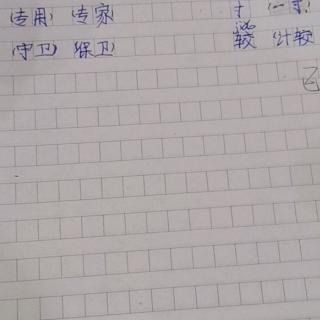 (专用)(专家 寸 (一寸
jiào
(守卫)(保卫 较 (计较